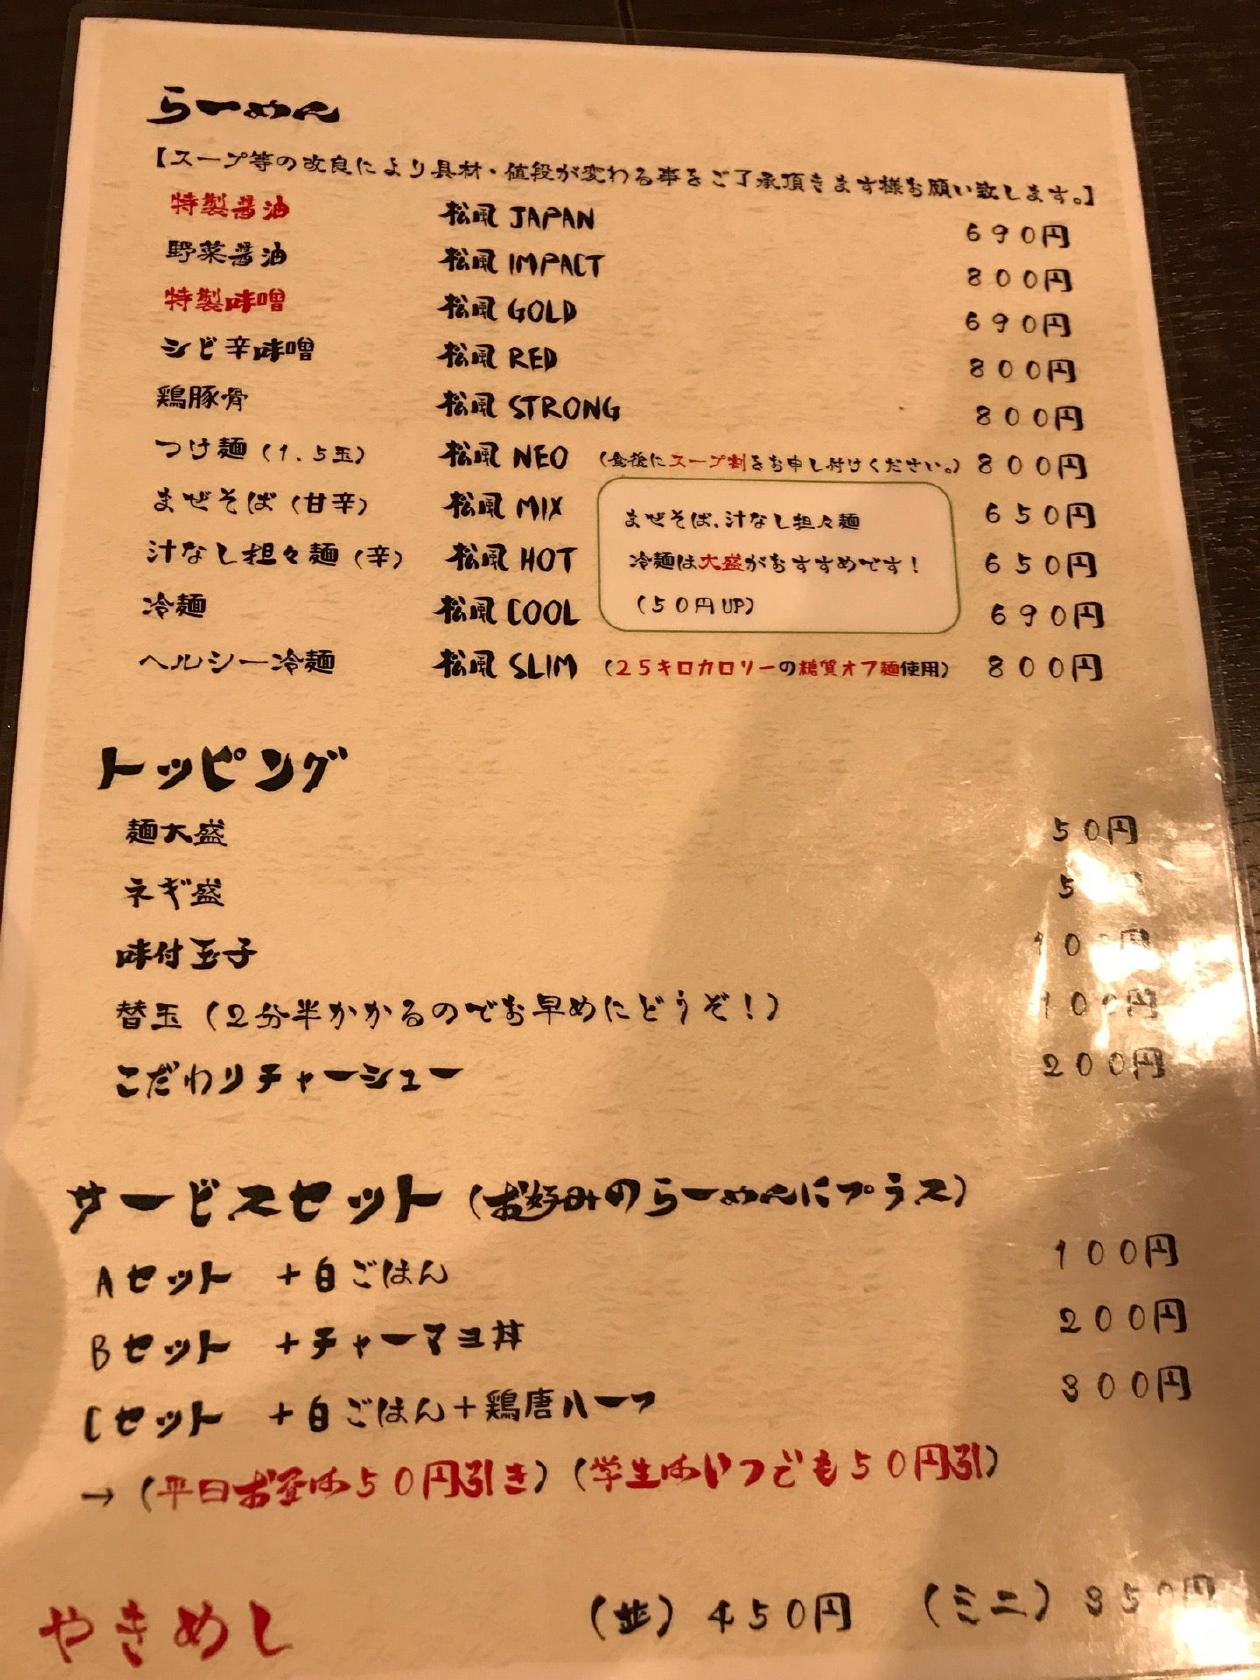 らーめん
【スープ等の改良により具材・値段が変わる事をご了承頂きます様お願い致します。】
特製醤油 松風 JAPAN 690円
野菜醤油 松風 IMPACT 800円
特製味噌 松風 GOLD 690円
シビ辛味噌 松風 RED 800円
鶏豚骨 松風 STRONG 800円
つけ麺（1.5玉） 松風 NEO （食後にスープ割をお申し付けください。） 800円
まぜそば（甘辛） 松風 MIX 650円
汁なし担々麺（辛） 松風 HOT 650円
冷麺 松風 COOL 690円
まぜそば、汁なし担々麺
冷麺は大盛がおすすめです！
（50円UP）
ヘルシー冷麺 松風 SLIM （25キロカロリーの糖質オフ麺使用） 800円
トッピング
麺大盛 50円
ネギ盛
味付玉子 100円
替玉（2分半かかるのでお早めにどうぞ！） 100円
こだわりチャーシュー 200円
サービスセット（お好みのらーめんにプラス）
Aセット ＋白ごはん 100円
Bセット ＋チャーマヨ丼 200円
Cセット ＋白ごはん＋鶏唐ハーフ 300円
→（平日お昼は50円引き）（学生はいつでも50円引）
やきめし （並）450円 （ミニ）350円